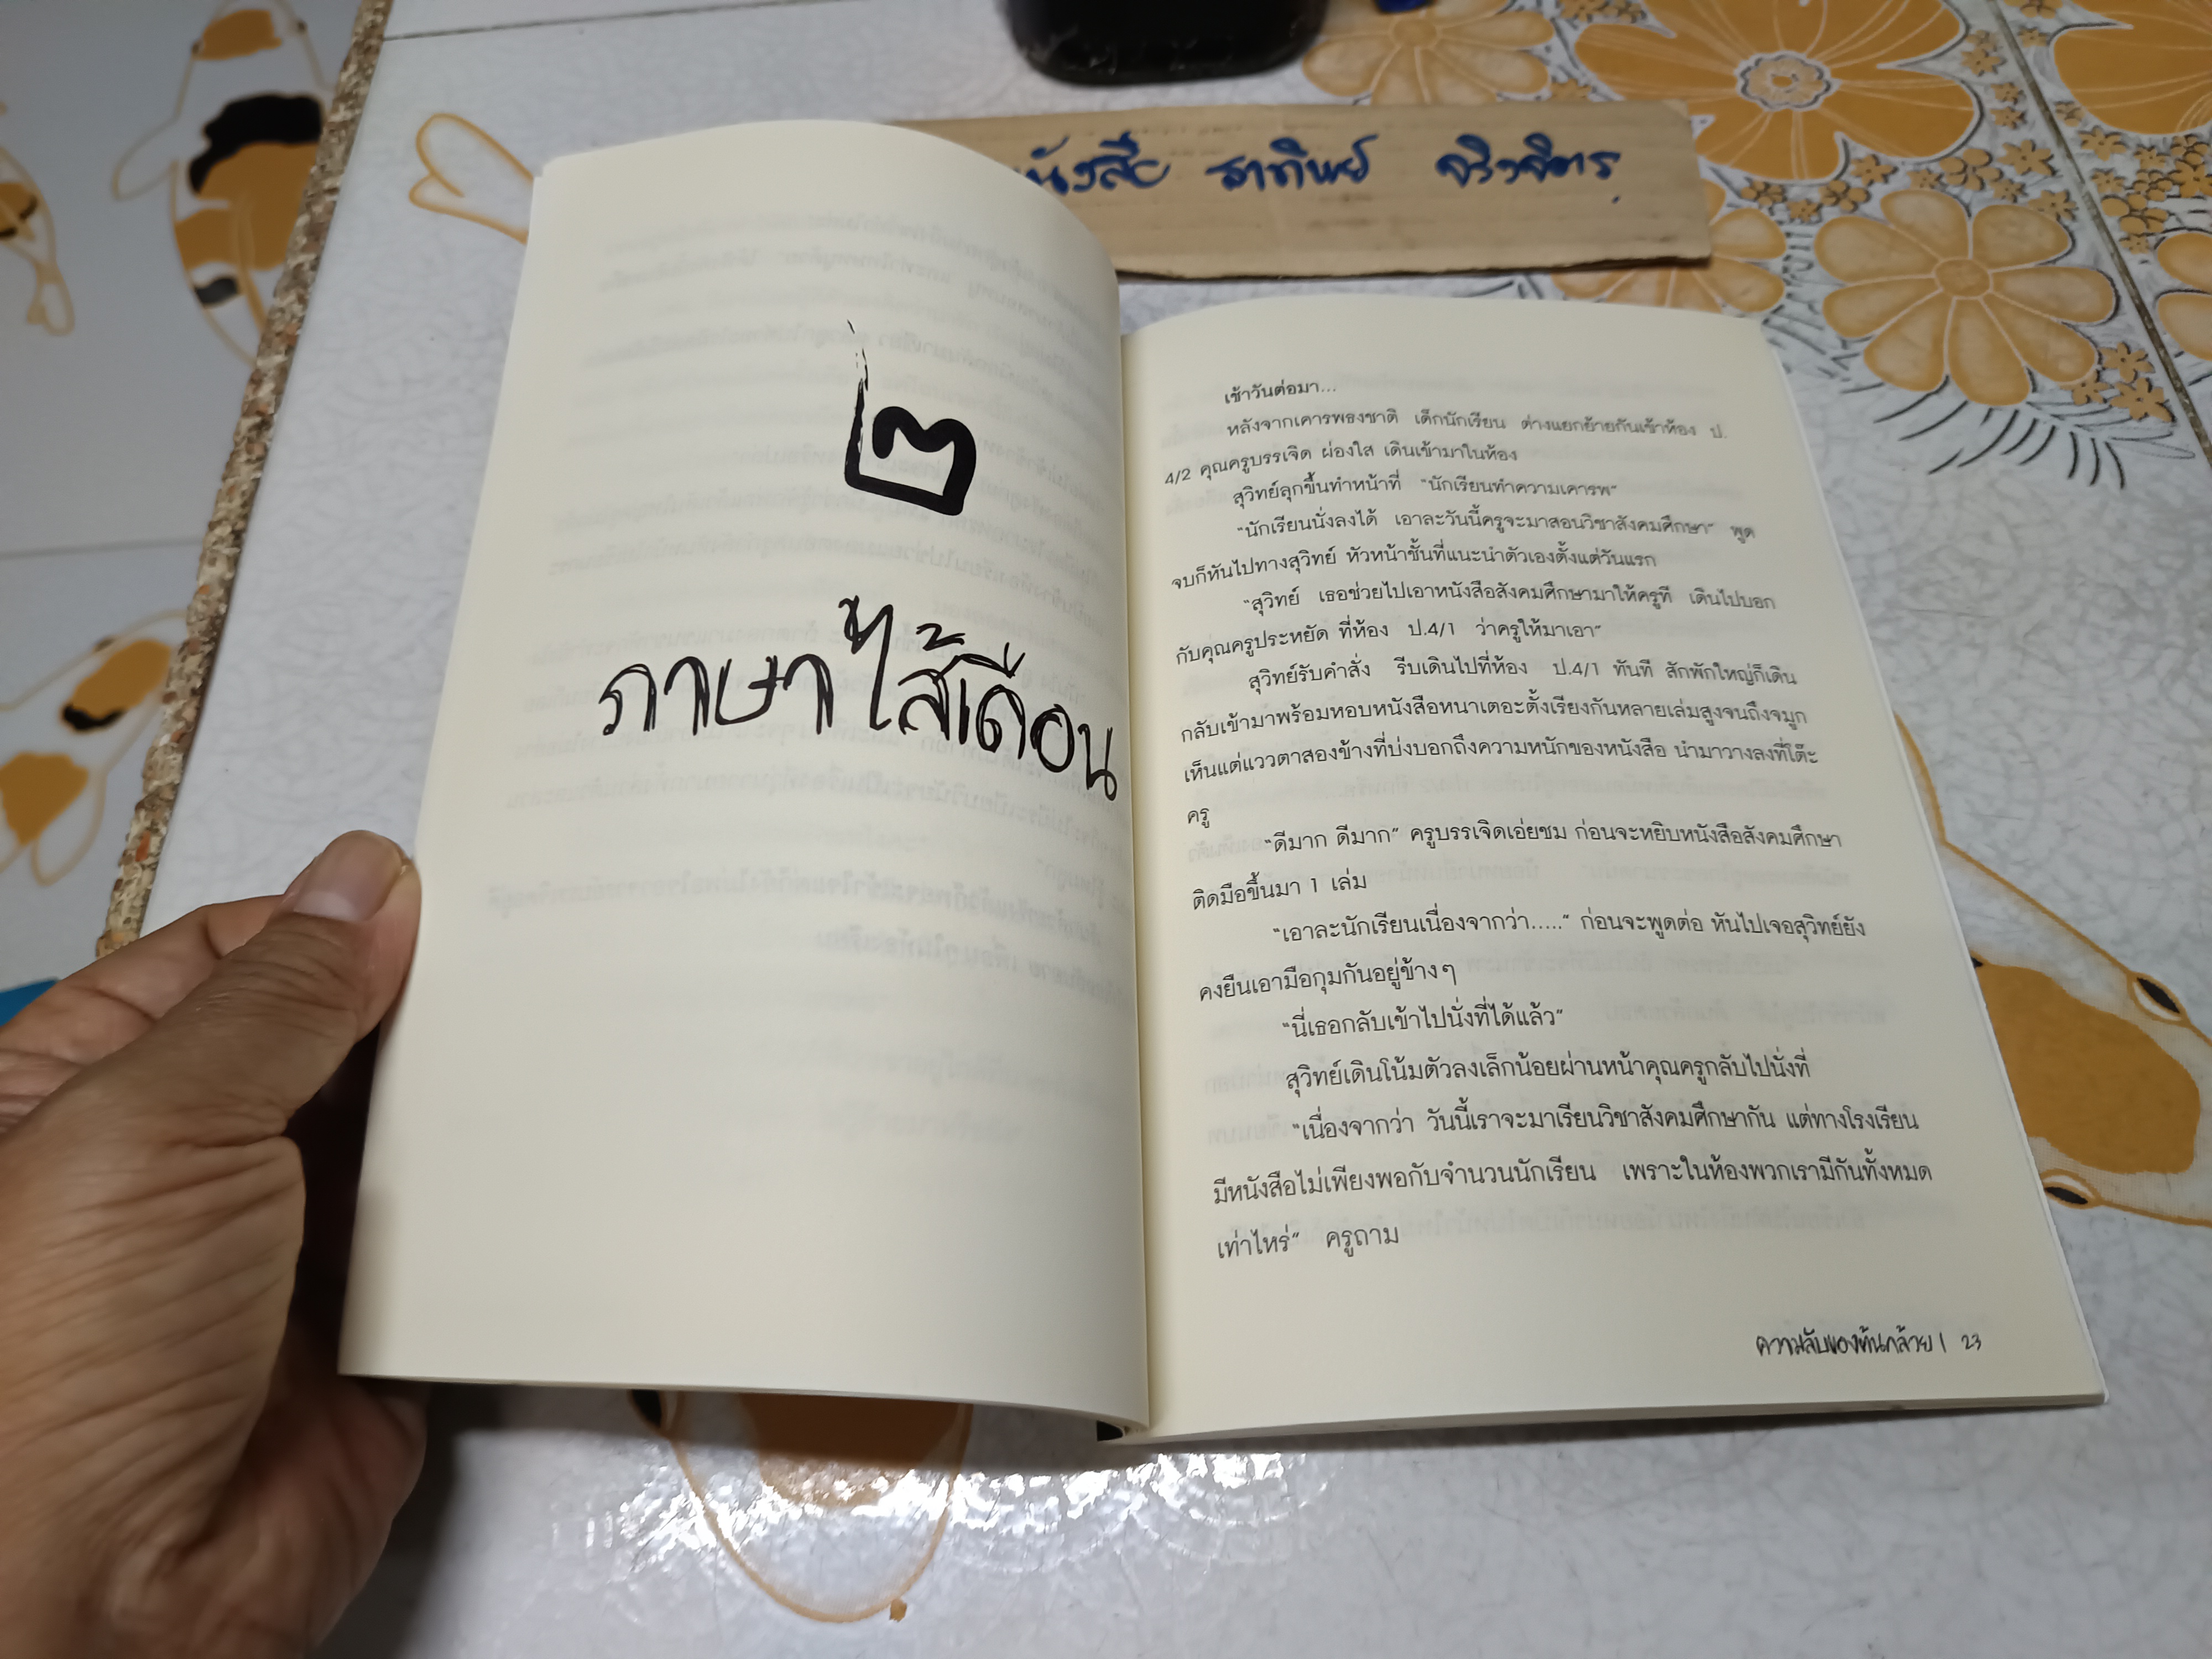 หนังสือ ธาทิพย์ จริงจิตร
๒
ภาษาไส้เดือน
เช้าวันต่อมา...
หลังจากเคารพธงชาติ เด็กนักเรียน ต่างแยกย้ายกันเข้าห้อง ป.
4/2 คุณครูบรรเจิด ผ่องใส เดินเข้ามาในห้อง
สุวิทย์ลุกขึ้นทำหน้าที่ “นักเรียนทำความเคารพ”
“นักเรียนนั่งลงได้ เอาละวันนี้ครูจะมาสอนวิชาสังคมศึกษา” พูด
จบก็หันไปทางสุวิทย์ หัวหน้าชั้นที่แนะนำตัวเองตั้งแต่วันแรก
“สุวิทย์ เธอช่วยไปเอาหนังสือสังคมศึกษามาให้ครูที เดินไปบอก
กับคุณครูประหยัด ที่ห้อง ป.4/1 ว่าครูให้มาเอา”
สุวิทย์รับคำสั่ง รีบเดินไปที่ห้อง ป.4/1 ทันที สักพักใหญ่ก็เดิน
กลับเข้ามาพร้อมหอบหนังสือหนาเตอะตั้งเรียงกันหลายเล่มสูงจนถึงจมูก
เห็นแต่แววตาสองข้างที่บ่งบอกถึงความหนักของหนังสือ นำมาวางลงที่โต๊ะ
ครู
“ดีมาก ดีมาก” ครูบรรเจิดเอ่ยชม ก่อนจะหยิบหนังสือสังคมศึกษา
ติดมือขึ้นมา 1 เล่ม
“เอาละนักเรียนเนื่องจากว่า.....” ก่อนจะพูดต่อ หันไปเจอสุวิทย์ยัง
คงยืนเอามือกุมกันอยู่ข้างๆ
“นี่เธอกลับเข้าไปนั่งที่ได้แล้ว”
สุวิทย์เดินโน้มตัวลงเล็กน้อยผ่านหน้าคุณครูกลับไปนั่งที่
“เนื่องจากว่า วันนี้เราจะมาเรียนวิชาสังคมศึกษากัน แต่ทางโรงเรียน
มีหนังสือไม่เพียงพอกับจำนวนนักเรียน เพราะในห้องพวกเรามีกันทั้งหมด
เท่าไหร่” ครูถาม
ความลับของต้นกล้วย | 23